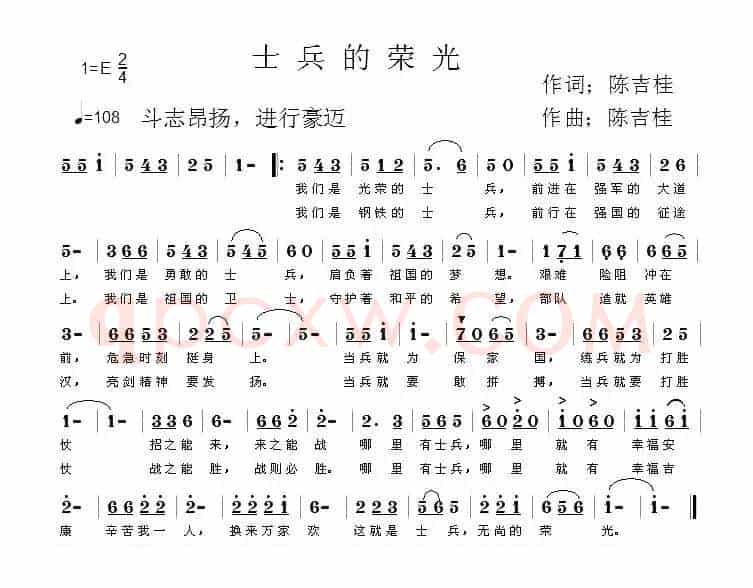 士兵的荣光
1=E 2/4
作词：陈吉桂
♩=108 斗志昂扬，进行豪迈
作曲：陈吉桂
5 5 i | 5 4 3 | 2 5 | 1 - ‖: 5 4 3 | 5 1 2 | 5. 6 | 5 0 | 5 5 i | 5 4 3 | 2 6 |
我们是 光荣的 士 兵，前进在 强军的 大道
我们是 钢铁的 士 兵，前行在 强国的 征途
5 - | 3 6 6 | 5 4 3 | 2 4 5 | 6 0 | 5 5 i | 5 4 3 | 2 5 | 1 - | 1 7 1 | 6 6 | 6 6 5 |
上，我们是 勇敢的 士 兵，肩负着 祖国的 梦 想。艰难 险阻 冲在
上。我们是 祖国的 卫 士，守护着 和平的 希 望，部队 造就 英雄
3 - | 6 6 5 3 | 2 2 5 | 5 - | 5 - | 5 5 i | 6 5 | 7 0 6 5 | 3 - | 5 5 3 | 2 5 |
前，危急时刻 挺身 上。 当兵就 为 保家 国，练兵就为 打胜
汉，亮剑精神 要发 扬。 当兵就要 敢拼 搏，当兵就要 打胜
1 - | 1 - | 3 3 6 | 6 - | 6 6 2 | 2 - | 2. 3 | 5 6 5 | 6 0 2 0 | i 0 6 0 | 6 6 i |
仗 招之能 来，来之能 战 哪 里 有士兵，哪 里 就 有 幸福安
仗 战之能 胜，战则必 胜。哪 里 有士兵，哪 里 就 有 幸福吉
2 - | 6 6 2 2 | 2 - | 2 2 2 i | 2 - | 2 2 2 | 5 6 5 | 6 2 2 | 2 5 | i - | i - :‖
康 辛苦我一 人，换来万家 欢 这就是 士 兵，无尚的 荣 光。
qpcxw.COM